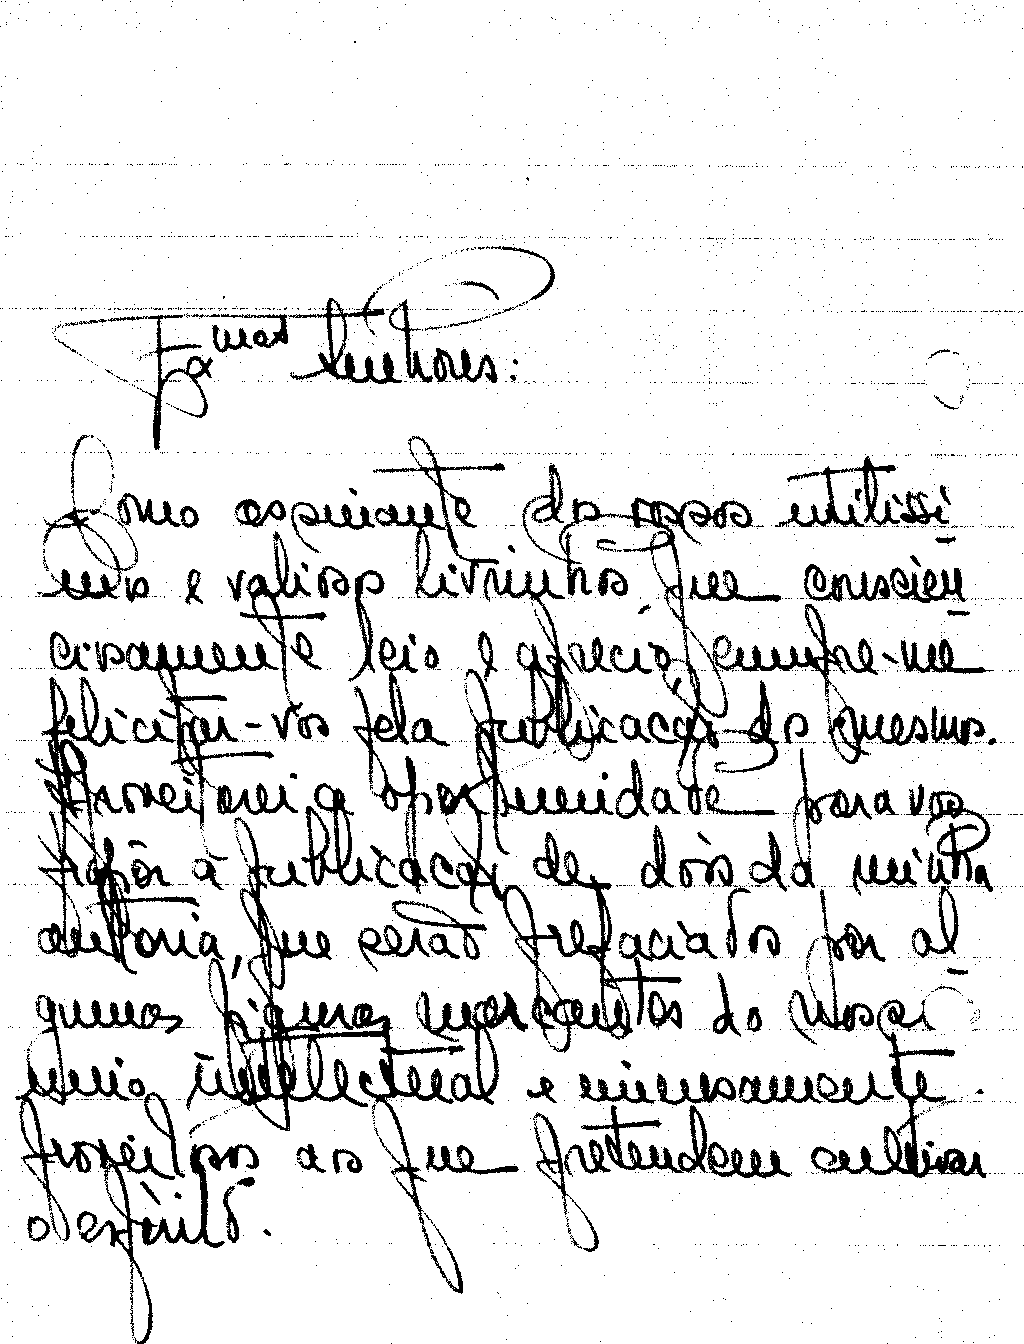 Exmas Senhores:
Como aspirante dos vossos utilissi
mos e valiosos livrinhos que conscien
ciosamente leio e aprecio, cumpre-me
felicitar-vos pela publicação dos mesmos.
Aproveitarei a oportunidade para vos
propôr a publicação de dois da minha
autoria, que serão prefaciados por al
gumas figuras marcantes do nosso
meio intelectual e imensamente
proveitosos aos que pretendem cultivar
o espírito.